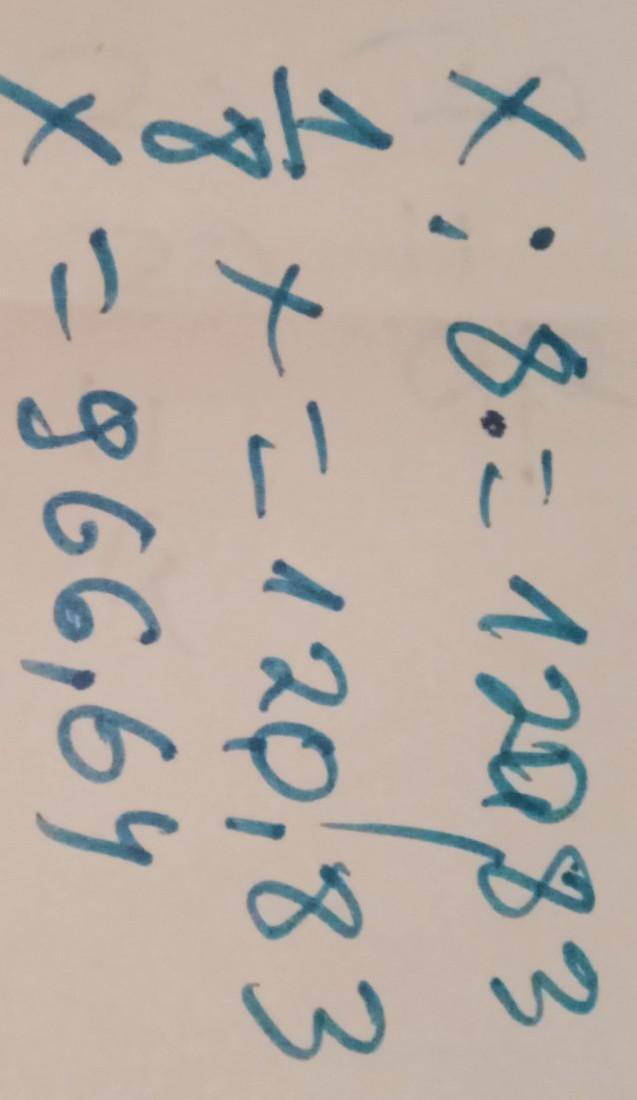 x : 8 = 120,83
1/8 x = 120,83
x = 966,64